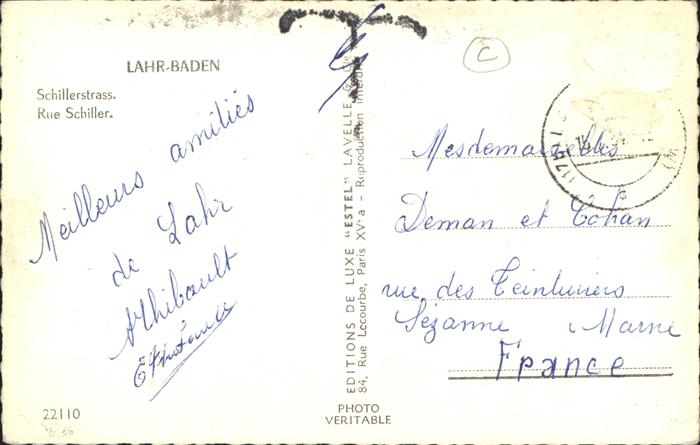 LAHR-BADEN
Schillerstrass.
Rue Schiller.
Meilleurs amitiés
de Lahr
Thibault
22110
EDITIONS DE LUXE "ESTEL" LAVELLE
84, Rue Lecourbe, Paris XVe - Reproduction interdite
PHOTO
VERITABLE
C
Mesdemoiselles
Deman et Cohan
rue des Teinturiers
Sézanne Marne
France